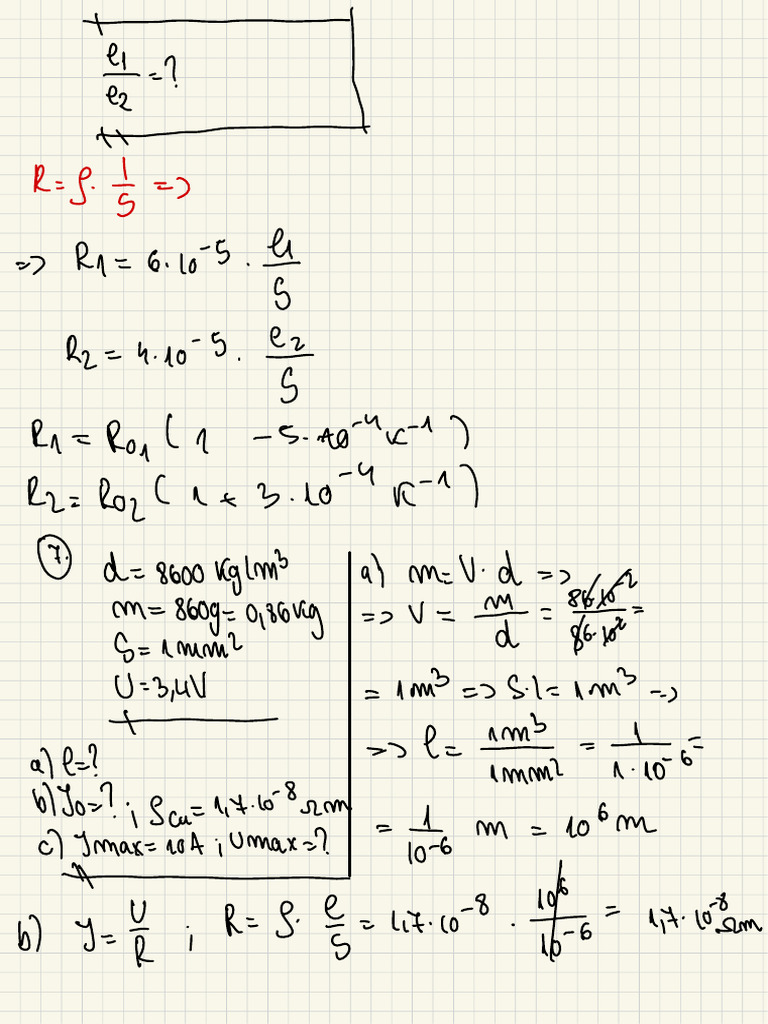 l1/l2 = ?
R = ρ · 1/S =>
=> R1 = 6·10^-5 · l1/S
R2 = 4·10^-5 · l2/S
R1 = R01 ( 1 - 5·10^-4 K^-1 )
R2 = R02 ( 1 + 3·10^-4 K^-1 )
7.
d = 8600 kg/m³
m = 860g = 0,86kg
S = 1mm²
U = 3,4V
a) l = ?
b) J0 = ? ; ρCu = 1,7·10^-8 Ωm
c) Jmax = 10A ; Umax = ?
a) m = V·d =>
=> V = m/d = 86·10^-2/86·10^2 =
= 1m³ => S·l = 1m³ =>
=> l = 1m³/1mm² = 1/1·10^-6 =
= 1/10^-6 m = 10^6 m
b) J = U/R ; R = ρ · l/S = 1,7·10^-8 · 10^6/10^-6 = 1,7·10^-8 Ωm